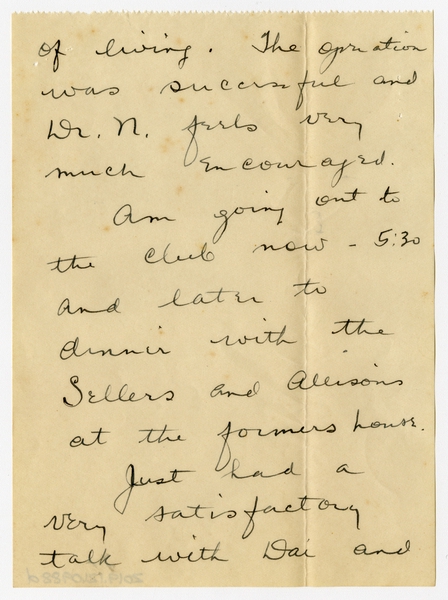 of living. The operation
was successful and
Dr. N. feels very
much encouraged.
Am going out to
the club now - 5:30
and later to
dinner with the
Sellers and Allisons
at the formers house.
Just had a
very satisfactory
talk with Dai and